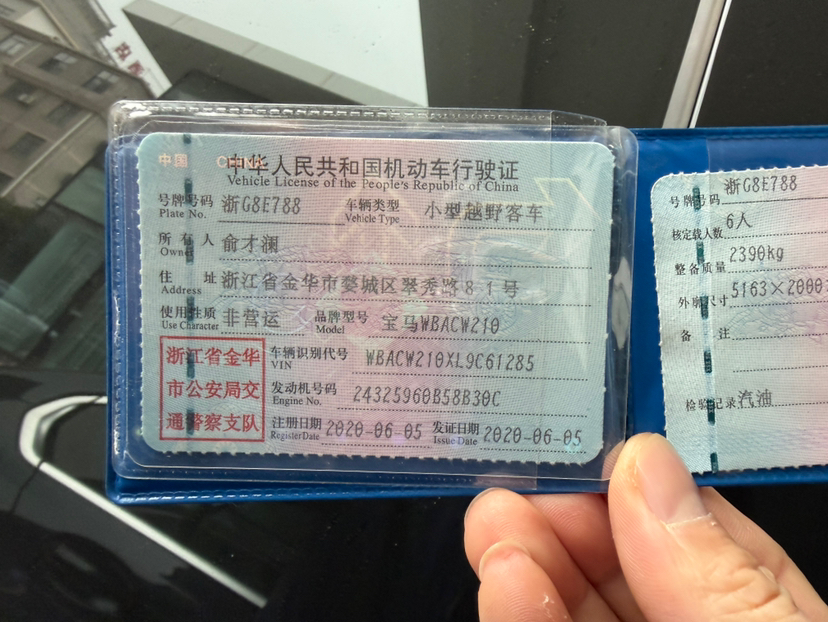 中国 CHINA
中华人民共和国机动车行驶证
Vehicle License of the People's Republic of China
号牌号码 浙G8E788 车辆类型 小型越野客车
Plate No. Vehicle Type
所有人 俞才澜
Owner
住址 浙江省金华市婺城区翠秀路81号
Address
使用性质 非营运 品牌型号 宝马WBACW210
Use Character Model
浙江省金华
市公安局交
通警察支队
车辆识别代号 WBACW210XL9C61285
VIN
发动机号码 24325960B58B30C
Engine No.
注册日期 2020-06-05 发证日期 2020-06-05
Register Date Issue Date
号牌号码 浙G8E788
核定载人数 6人
整备质量 2390kg
外廓尺寸 5163×2000
备注
检验记录 汽油